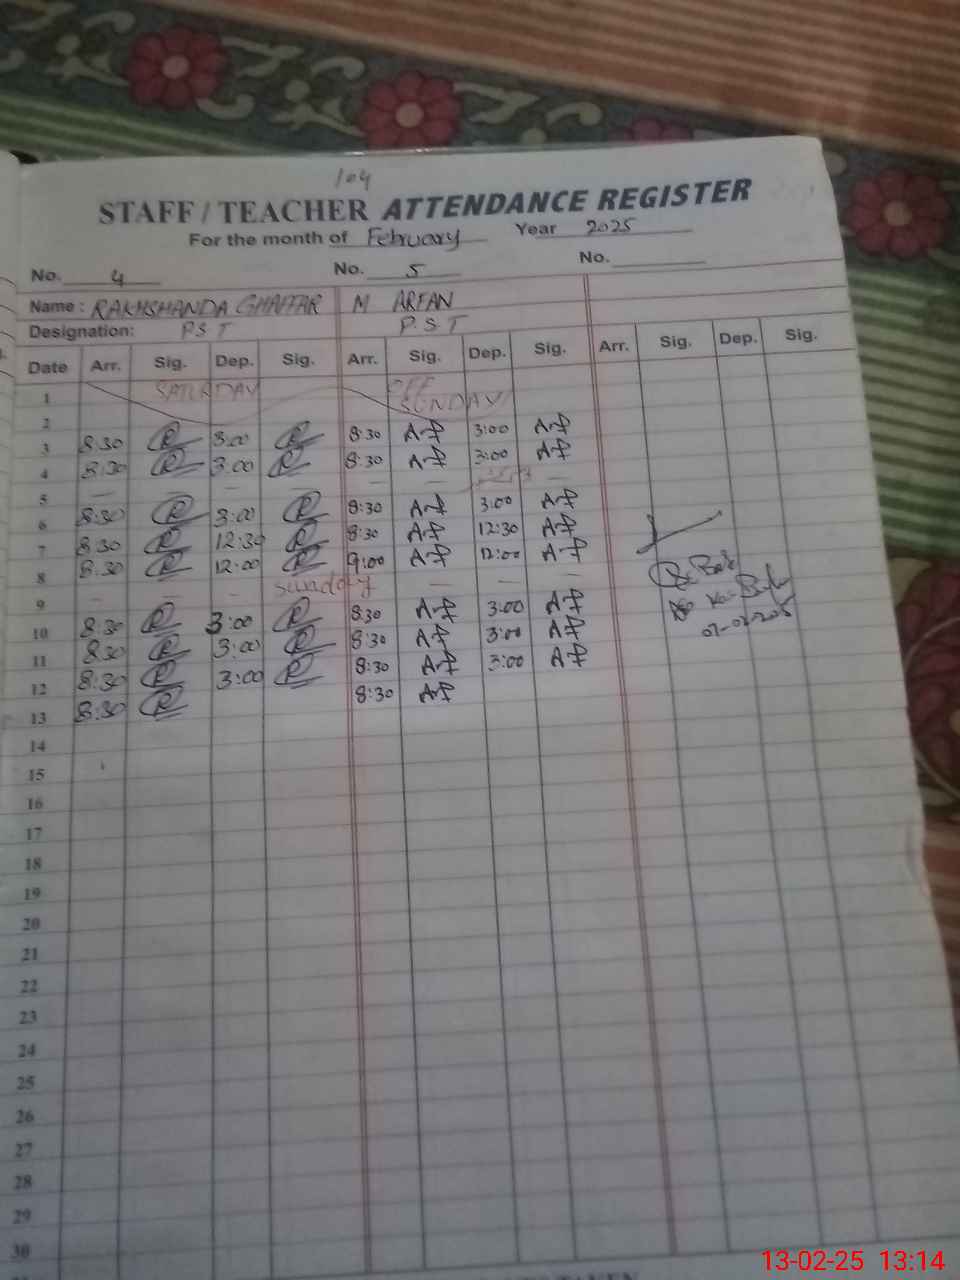 104
STAFF / TEACHER ATTENDANCE REGISTER
For the month of February Year 2025
No. 4 No. 5 No.
Name : RAKHSHANDA GHAFFAR M ARFAN
Designation: P.S.T P.S.T
Date Arr. Sig. Dep. Sig. Arr. Sig. Dep. Sig. Arr. Sig. Dep. Sig.
1 SATURDAY OFF
2 SUNDAY
3 8:30 R 3:00 R 8:30 Arf 3:00 Arf
4 8:30 R 3:00 R 8:30 Arf 3:00 Arf
5 — — — — — —
6 8:30 R 3:00 R 8:30 Arf 3:00 Arf
7 8:30 R 12:30 R 8:30 Arf 12:30 Arf
8 8:30 R 12:00 R 9:00 Arf 12:00 Arf
9 — — — sunday — — —
10 8:30 R 3:00 R 8:30 Arf 3:00 Arf
11 8:30 R 3:00 R 8:30 Arf 3:00 Arf
12 8:30 R 3:00 R 8:30 Arf 3:00 Arf
13 8:30 R 8:30 Arf
14
15
16
17
18
19
20
21
22
23
24
25
26
27
28
29
30
13-02-25 13:14